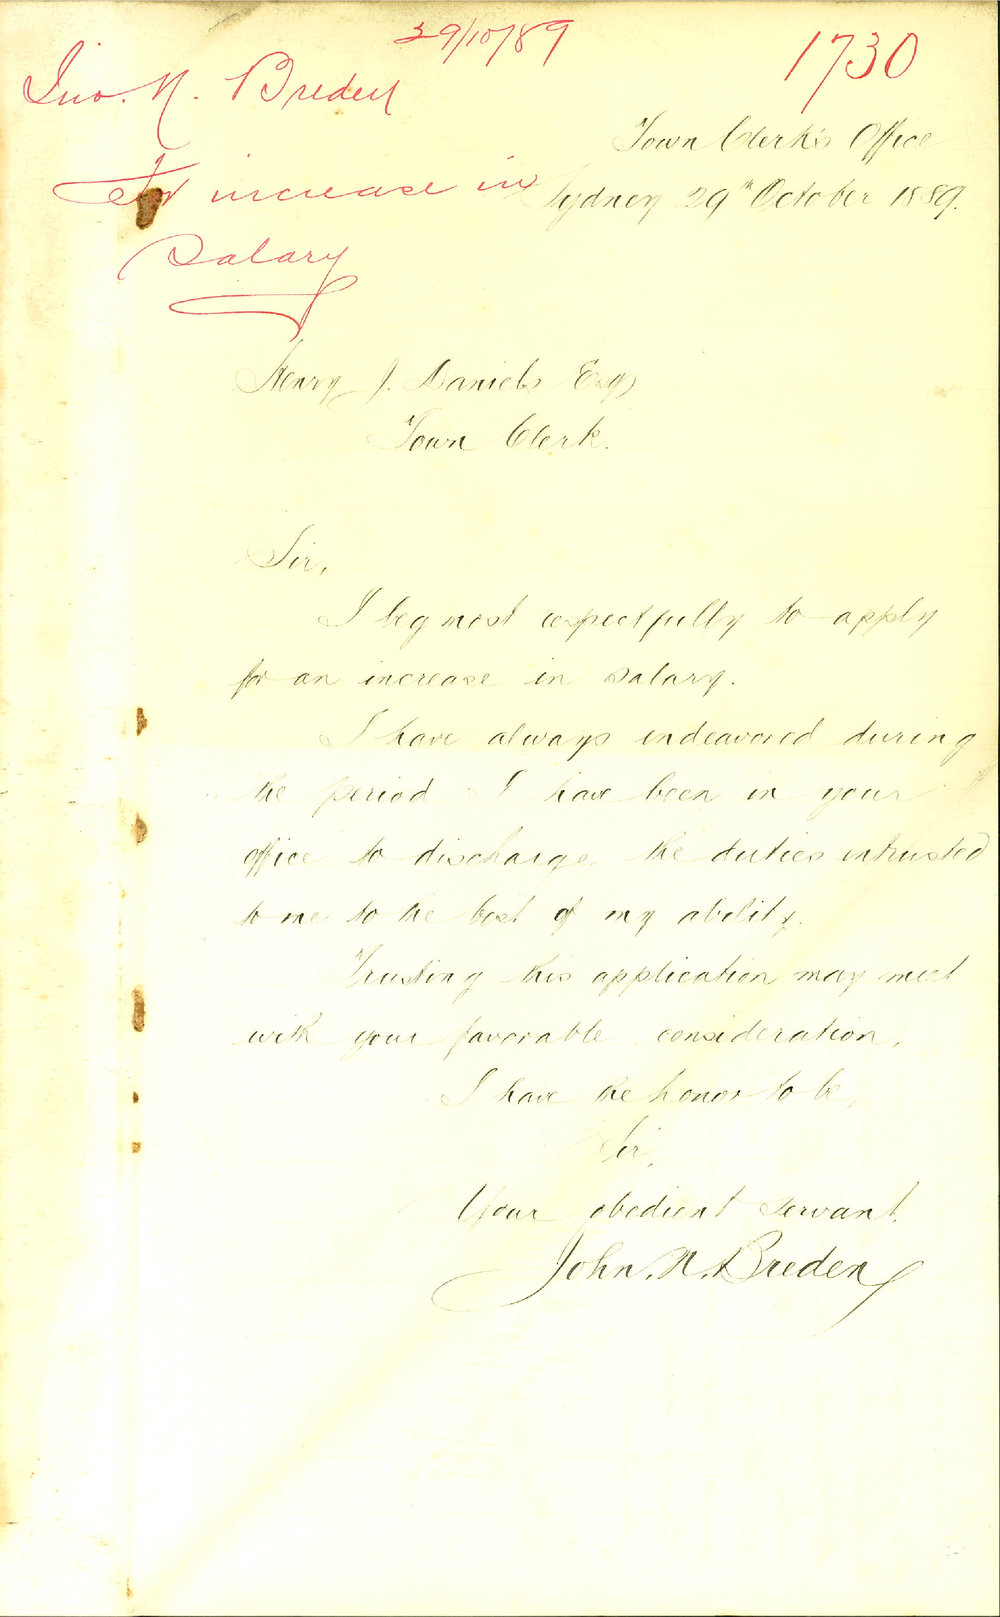 29/10/89
1730
Jno. N. Breden
For increase in
Salary
Town Clerk's Office
Sydney 29th October 1889.
Henry J. Daniels Esq
Town Clerk.
Sir,
I beg most respectfully to apply
for an increase in salary.
I have always endeavored during
the period I have been in your
office to discharge the duties intrusted
to me to the best of my ability.
Trusting this application may meet
with your favorable consideration,
I have the honor to be,
Sir,
Your obedient servant.
John. N. Breden